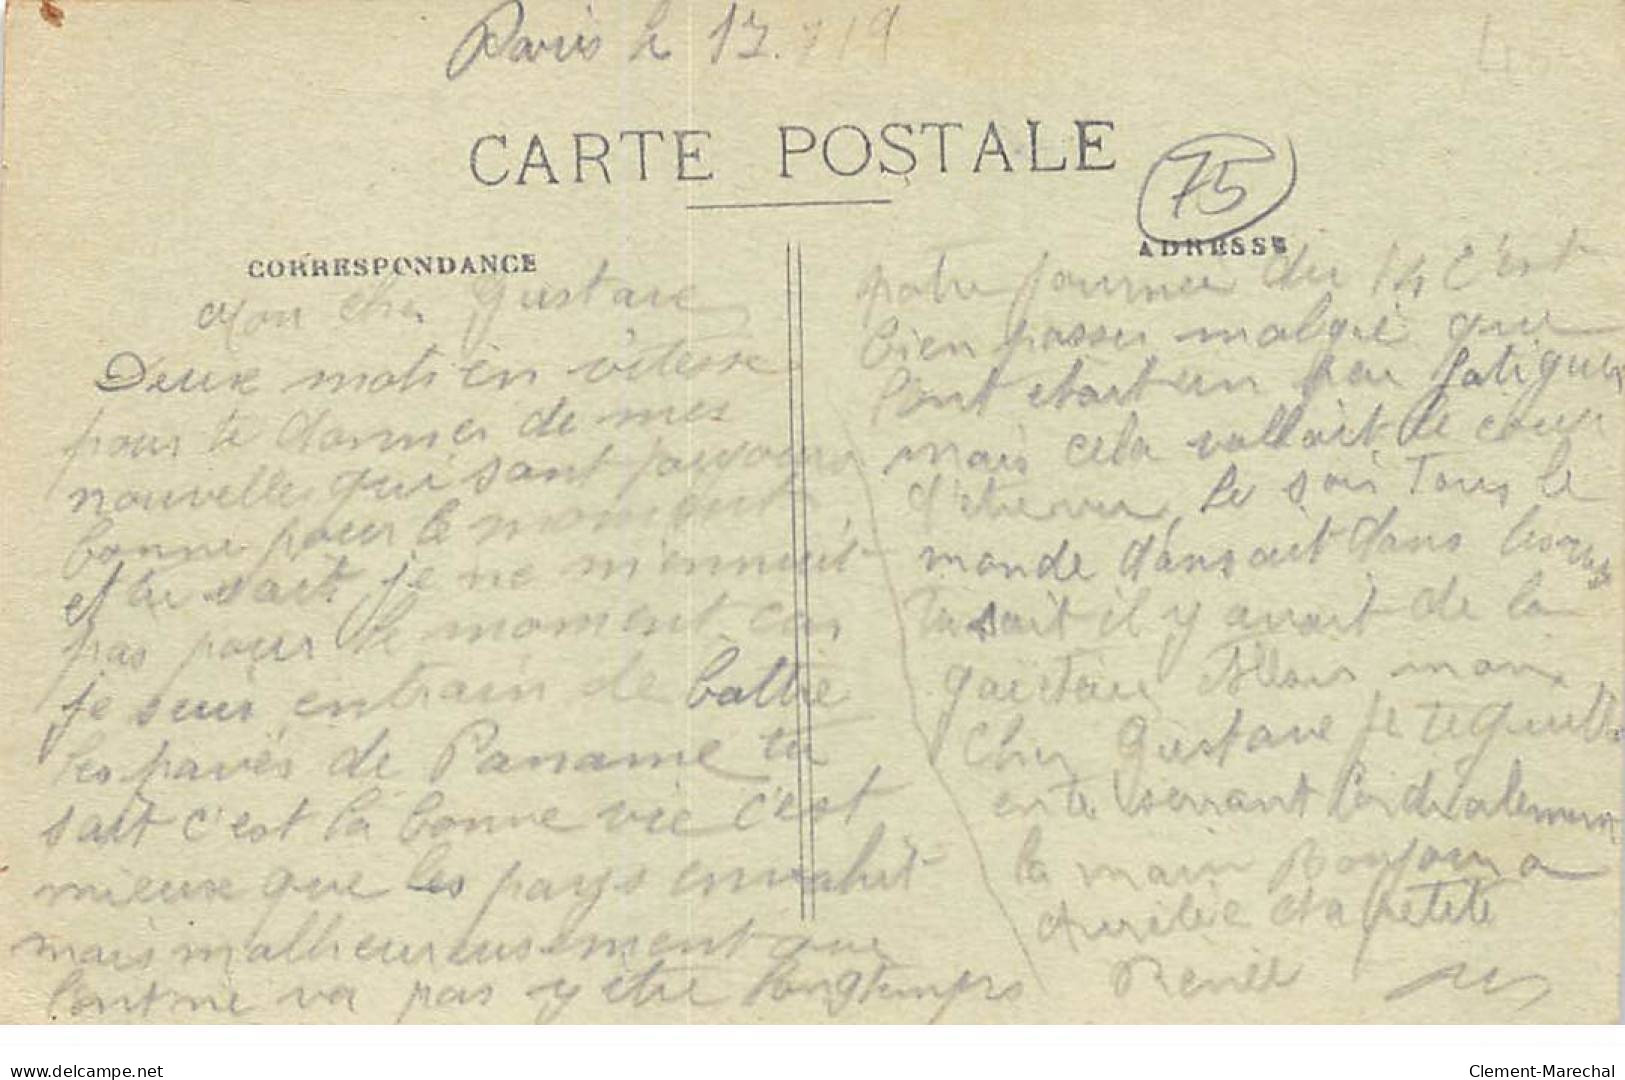 Paris le 17.7 19
CARTE POSTALE
75
CORRESPONDANCE
Mon cher Gustave
Deux mots en vitesse
pour te donner de mes
nouvelles qui sont toujours
bonne pour le moment
et tu sait je ne m'ennuit
pas pour le moment car
je suis entrain de battre
les pavés de Paname tu
sait c'est la bonne vie c'est
mieux que les pays envahit
mais malheureusement que
l'ont ne va pas y être longtemps
ADRESSE
notre journée du 14 c'est
bien passer malgré que
l'ont etait un peu fatiguer
mais cela vallait le coup
d'etre vu, le soir Tous le
monde dansait dans les rues
tu sait il y avait de la
gaieté Allons mon
cher Gustave je te quitte
en te serrant cordialement
la main Bonjour a
Aurélie et a la petite
Renée
delcampe.net
Clement-Marechal